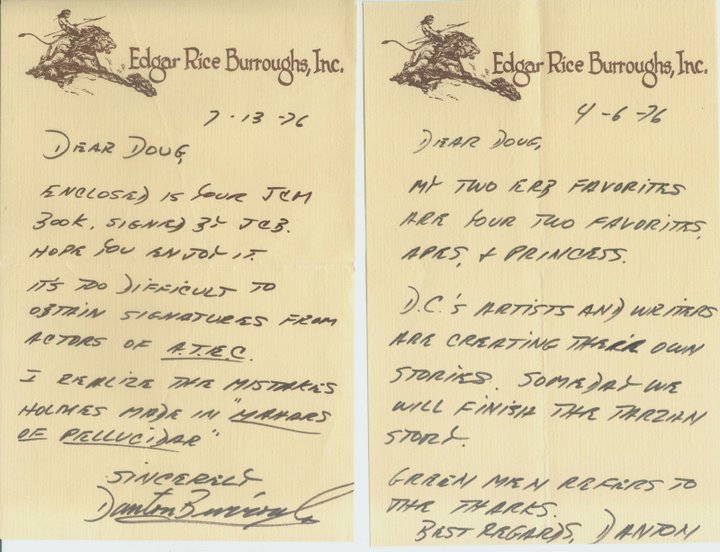 Edgar Rice Burroughs, Inc.
7-13-76
DEAR DOUG,
ENCLOSED IS YOUR JCM
BOOK, SIGNED BY JCB.
HOPE YOU ENJOY IT.
IT'S TOO DIFFICULT TO
OBTAIN SIGNATURES FROM
ACTORS OF A.T.E.C.
I REALIZE THE MISTAKES
HOLMES MADE IN "MAHARS
OF PELLUCIDAR"
SINCERELY
Danton Burroughs
Edgar Rice Burroughs, Inc.
4-6-76
DEAR DOUG,
MY TWO ERB FAVORITES
ARE YOUR TWO FAVORITES,
APES, + PRINCESS.
D.C.'S ARTISTS AND WRITERS
ARE CREATING THEIR OWN
STORIES. SOMEDAY WE
WILL FINISH THE TARZAN
STORY.
GREEN MEN REFERS TO
THE THARKS.
BEST REGARDS, DANTON